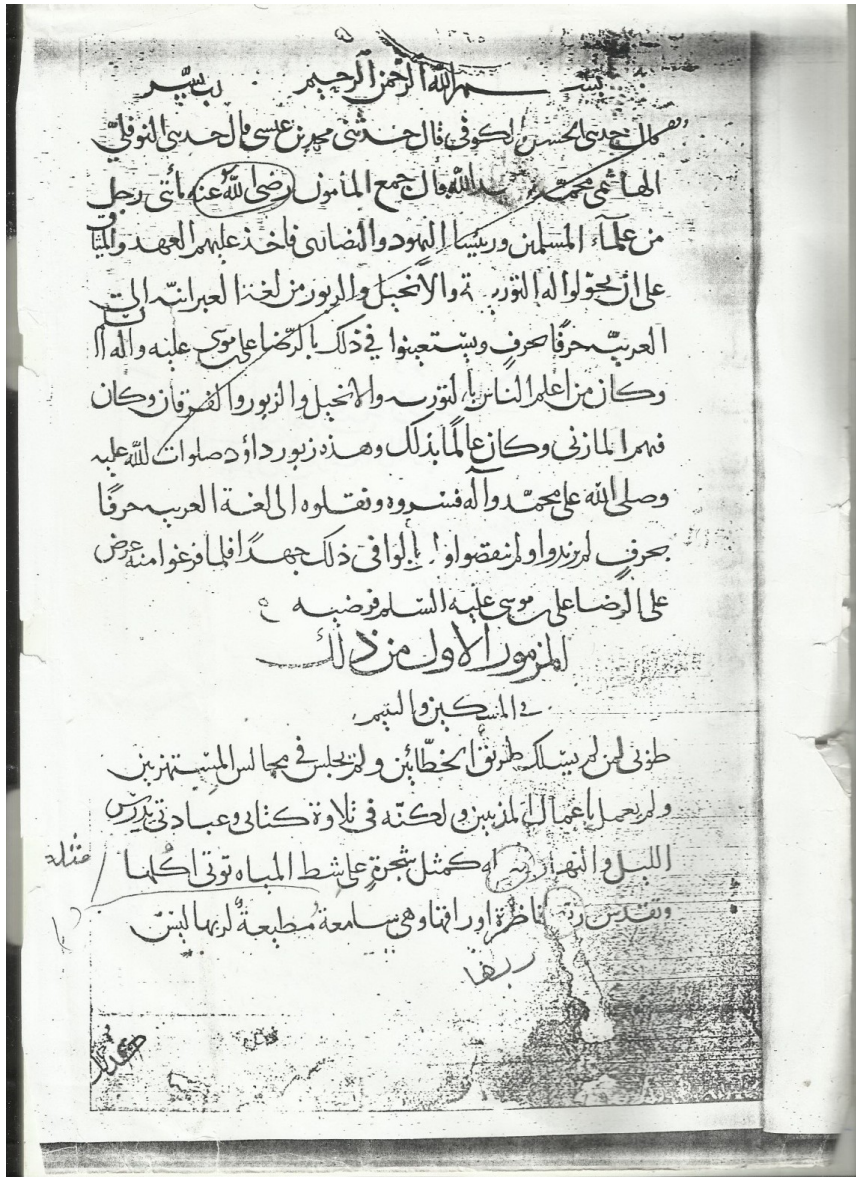 بسم الله الرحمن الرحيم رب يسر
قال حدثنى الحسن الكوفى قال حدثنى محمد بن عيسى قال حدثنى النوفلى
الهاشمى محمد عبدالله قال جمع المأمون رضى الله عنه مأتى رجل
من علمآء المسلمين ورييسا اليهود والنصارى فاخذ عليهم العهد والميثاق
على ان يحولوا له التورية والانجيل والزبور من لغة العبرانيه الى
العربيه حرفًا بحرف ويستعينوا فى ذلك بالرضا على موسى عليه واله
وكان من اعلم الناس بالتوريه والانجيل والزبور والفرقان وكان
فيهم المازنى وكان عالمًا بذلك وهذه زبور داؤد صلوات الله عليه
وصلى الله على محمد وآله فسروه ونقلوه الى لغة العربيه حرفًا
بحرف لم يزيدوا ولم ينقصوا ولا يألوا فى ذلك جهدًا فلما فرغوا منه عرض
على الرضا على بن موسى عليه السلم فرضيه
المزمور الاول من ذلك
فى المسكين واليتيم
طوبى لمن لم يسلك طريق الخطائين ولم يجلس فى مجالس المستهزين
ولم يعمل باعمال المذنبين ولكنه فى تلاوة كتابى وعبادتى يدرس
الليل والنهار كمثل شجرة على شط المياه توتى اكلها
مثله
وتقدس ناظرة اوراقها وهى سامعة مطيعة لربها ليس
ربها